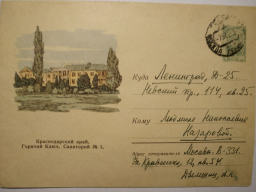 Краснодарский край.
Горячий Ключ. Санаторий № 1.
Куда Ленинград, Д-25.
Невский пр., 114, кв. 25.
Кому Людмиле Николаевне
Назаровой.
Адрес отправителя: Москва, В-331.
12, кв. 54.